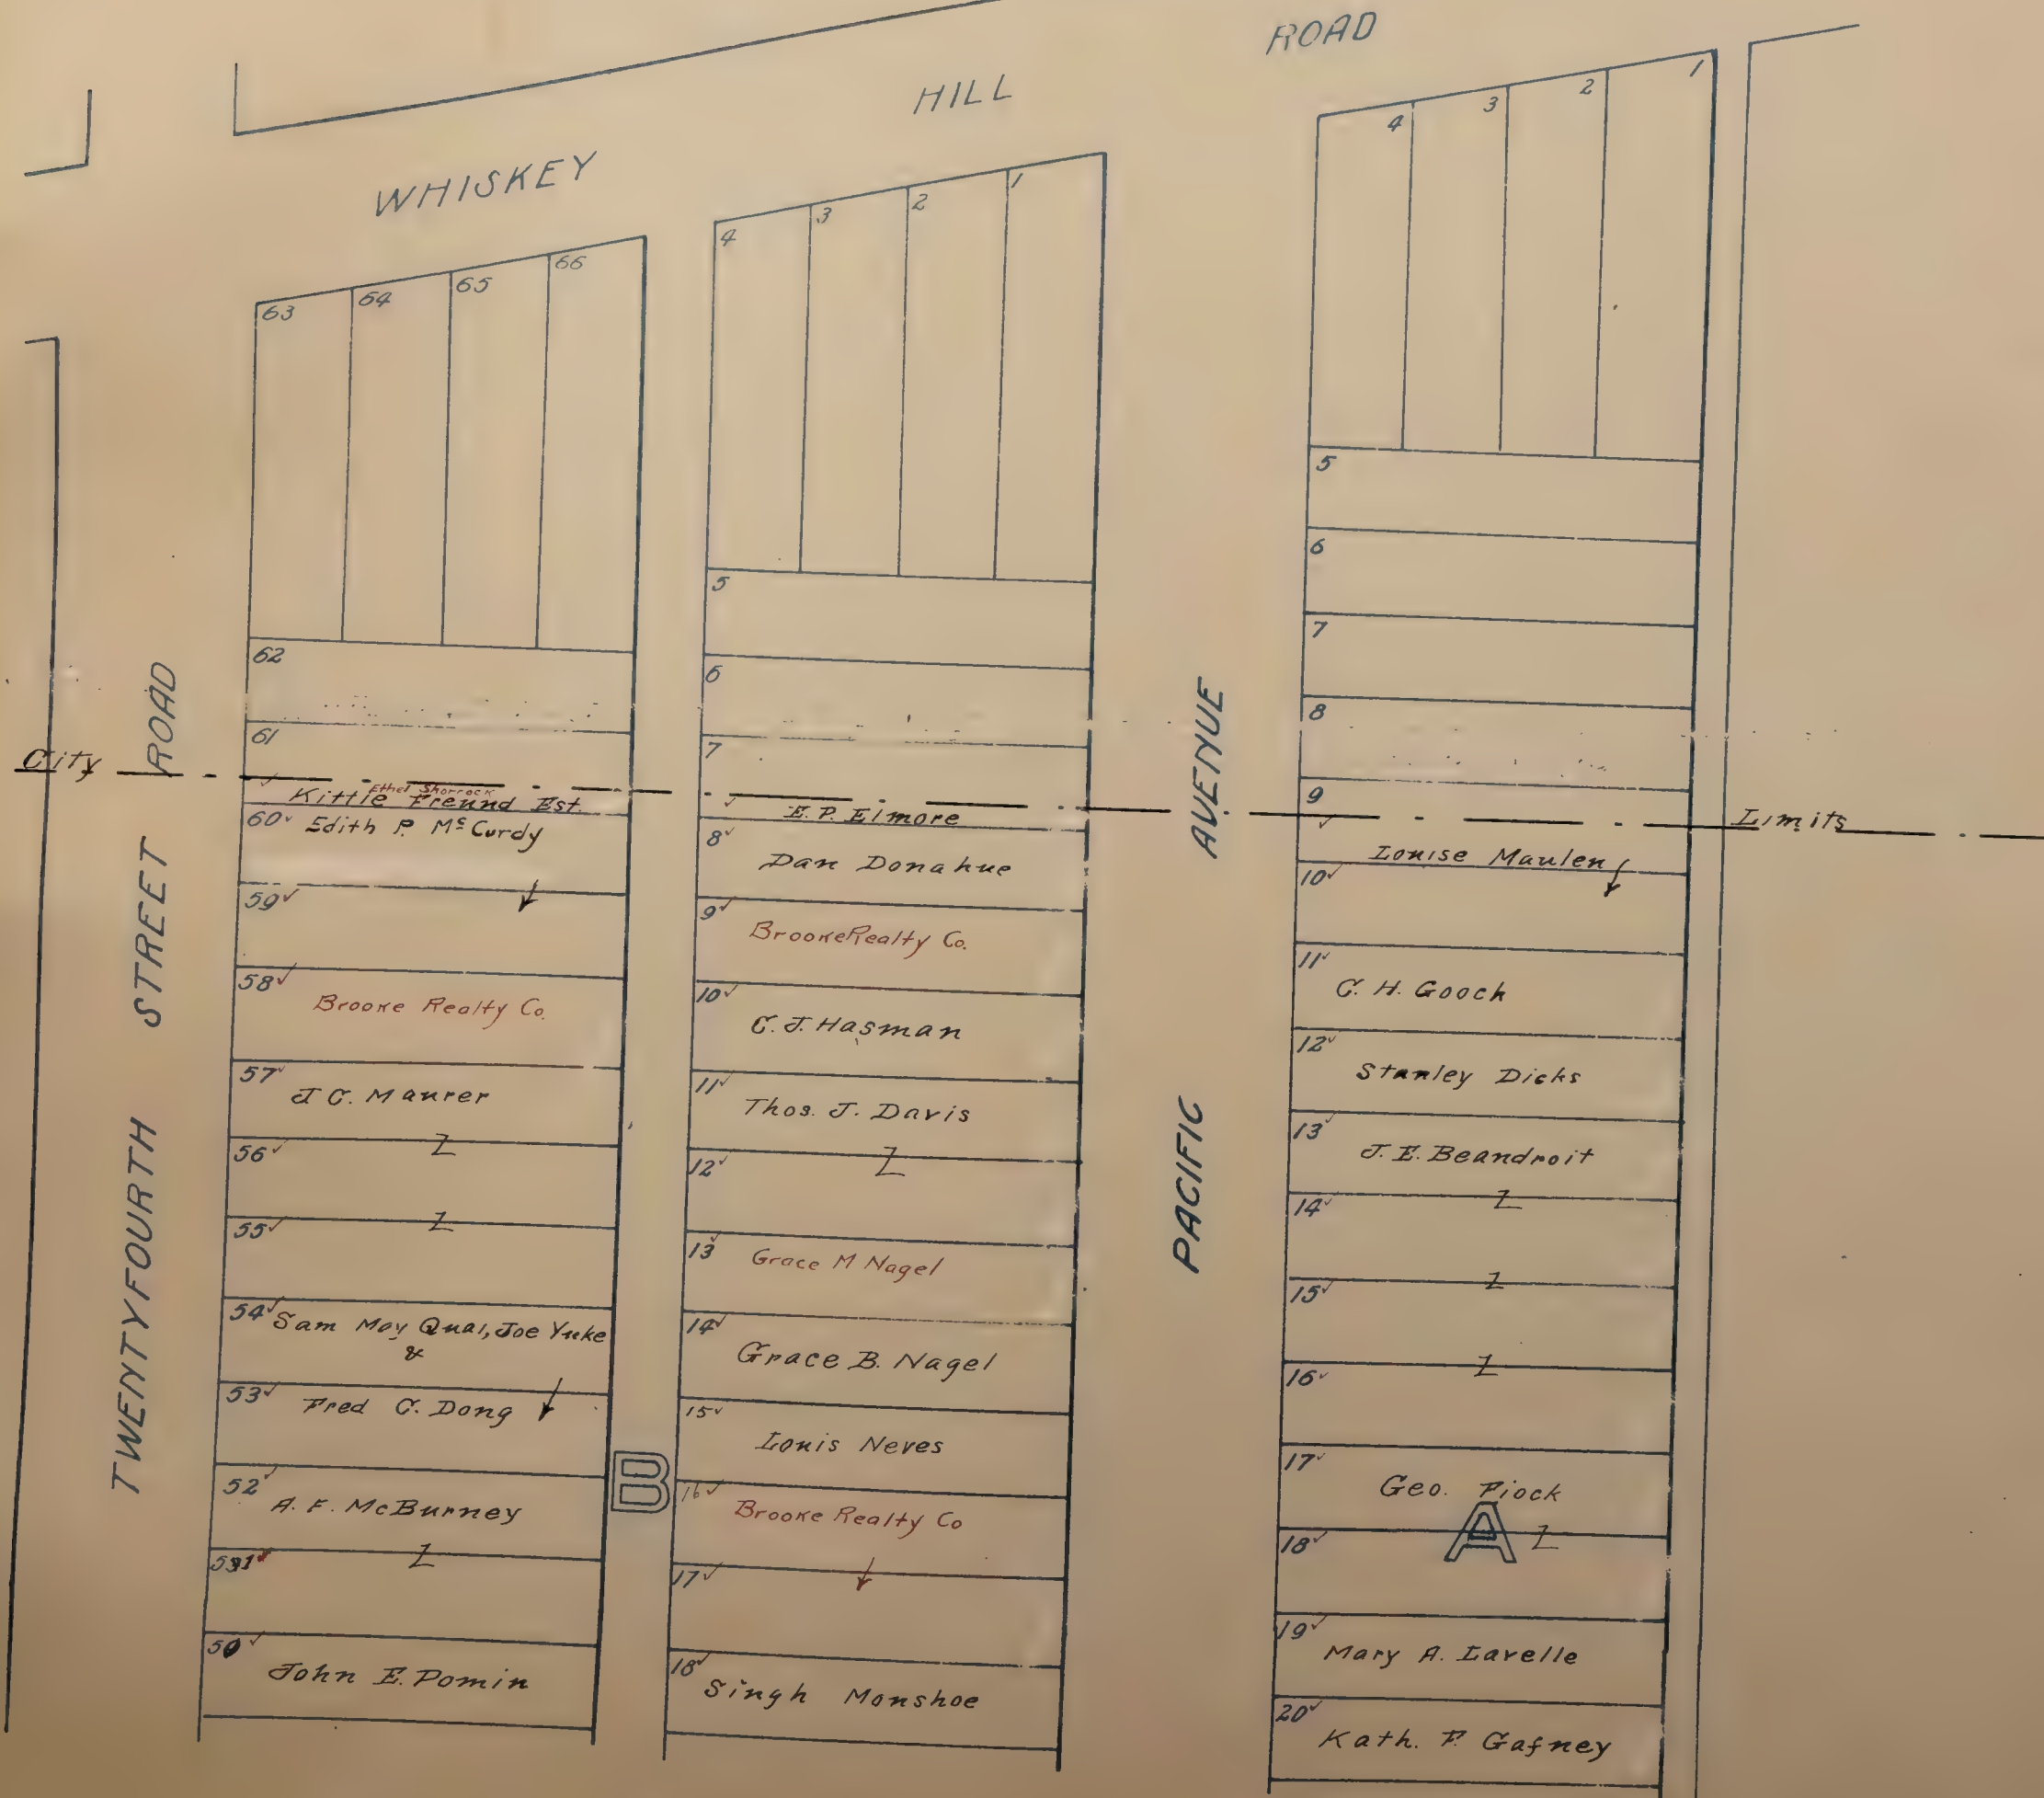 WHISKEY HILL ROAD
TWENTYFOURTH STREET ROAD
63
64
65
66
62
61
City
Ethel Shorrock
Kittie Freund Est.
60✓ Edith P. McCurdy
59✓
58✓
Brooke Realty Co.
57✓
J C. Maurer
56✓
Z
55✓
Z
54✓ Sam Moy Quai, Joe Yuke
&
53✓ Fred C. Dong
52✓
A. F. McBurney
Z
50✓
John E. Pomin
B
4
3
2
1
5
6
7
✓
E. P. Elmore
8✓
Dan Donahue
9✓
Brooke Realty Co.
10✓
C. J. Hasman
11✓
Thos. J. Davis
12✓
Z
13✓
Grace M Nagel
14✓
Grace B. Nagel
15✓
Louis Neves
16✓
Brooke Realty Co
17✓
18✓
Singh Monshoe
PACIFIC AVENUE
4
3
2
1
5
6
7
8
9
✓
Limits
Louise Maulen
10✓
11✓
C. H. Gooch
12✓
Stanley Dicks
13✓
J. E. Beaudroit
14✓
Z
15✓
Z
16✓
Z
17✓
Geo. Piock
A
18✓
Z
19✓
Mary A. Lavelle
20✓
Kath. F. Gafney